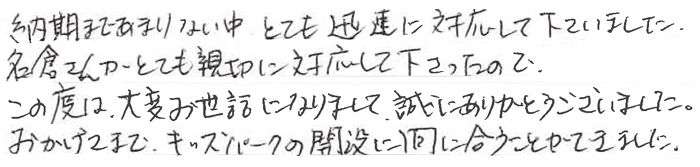 納期まであまりない中 とても迅速に対応して下さいました.
名倉さんがとても親切に対応して下さったので.
この度は、大変お世話になりまして、誠にありがとうございました。
おかげさまで、キッズパークの開設に間に合うことができました.